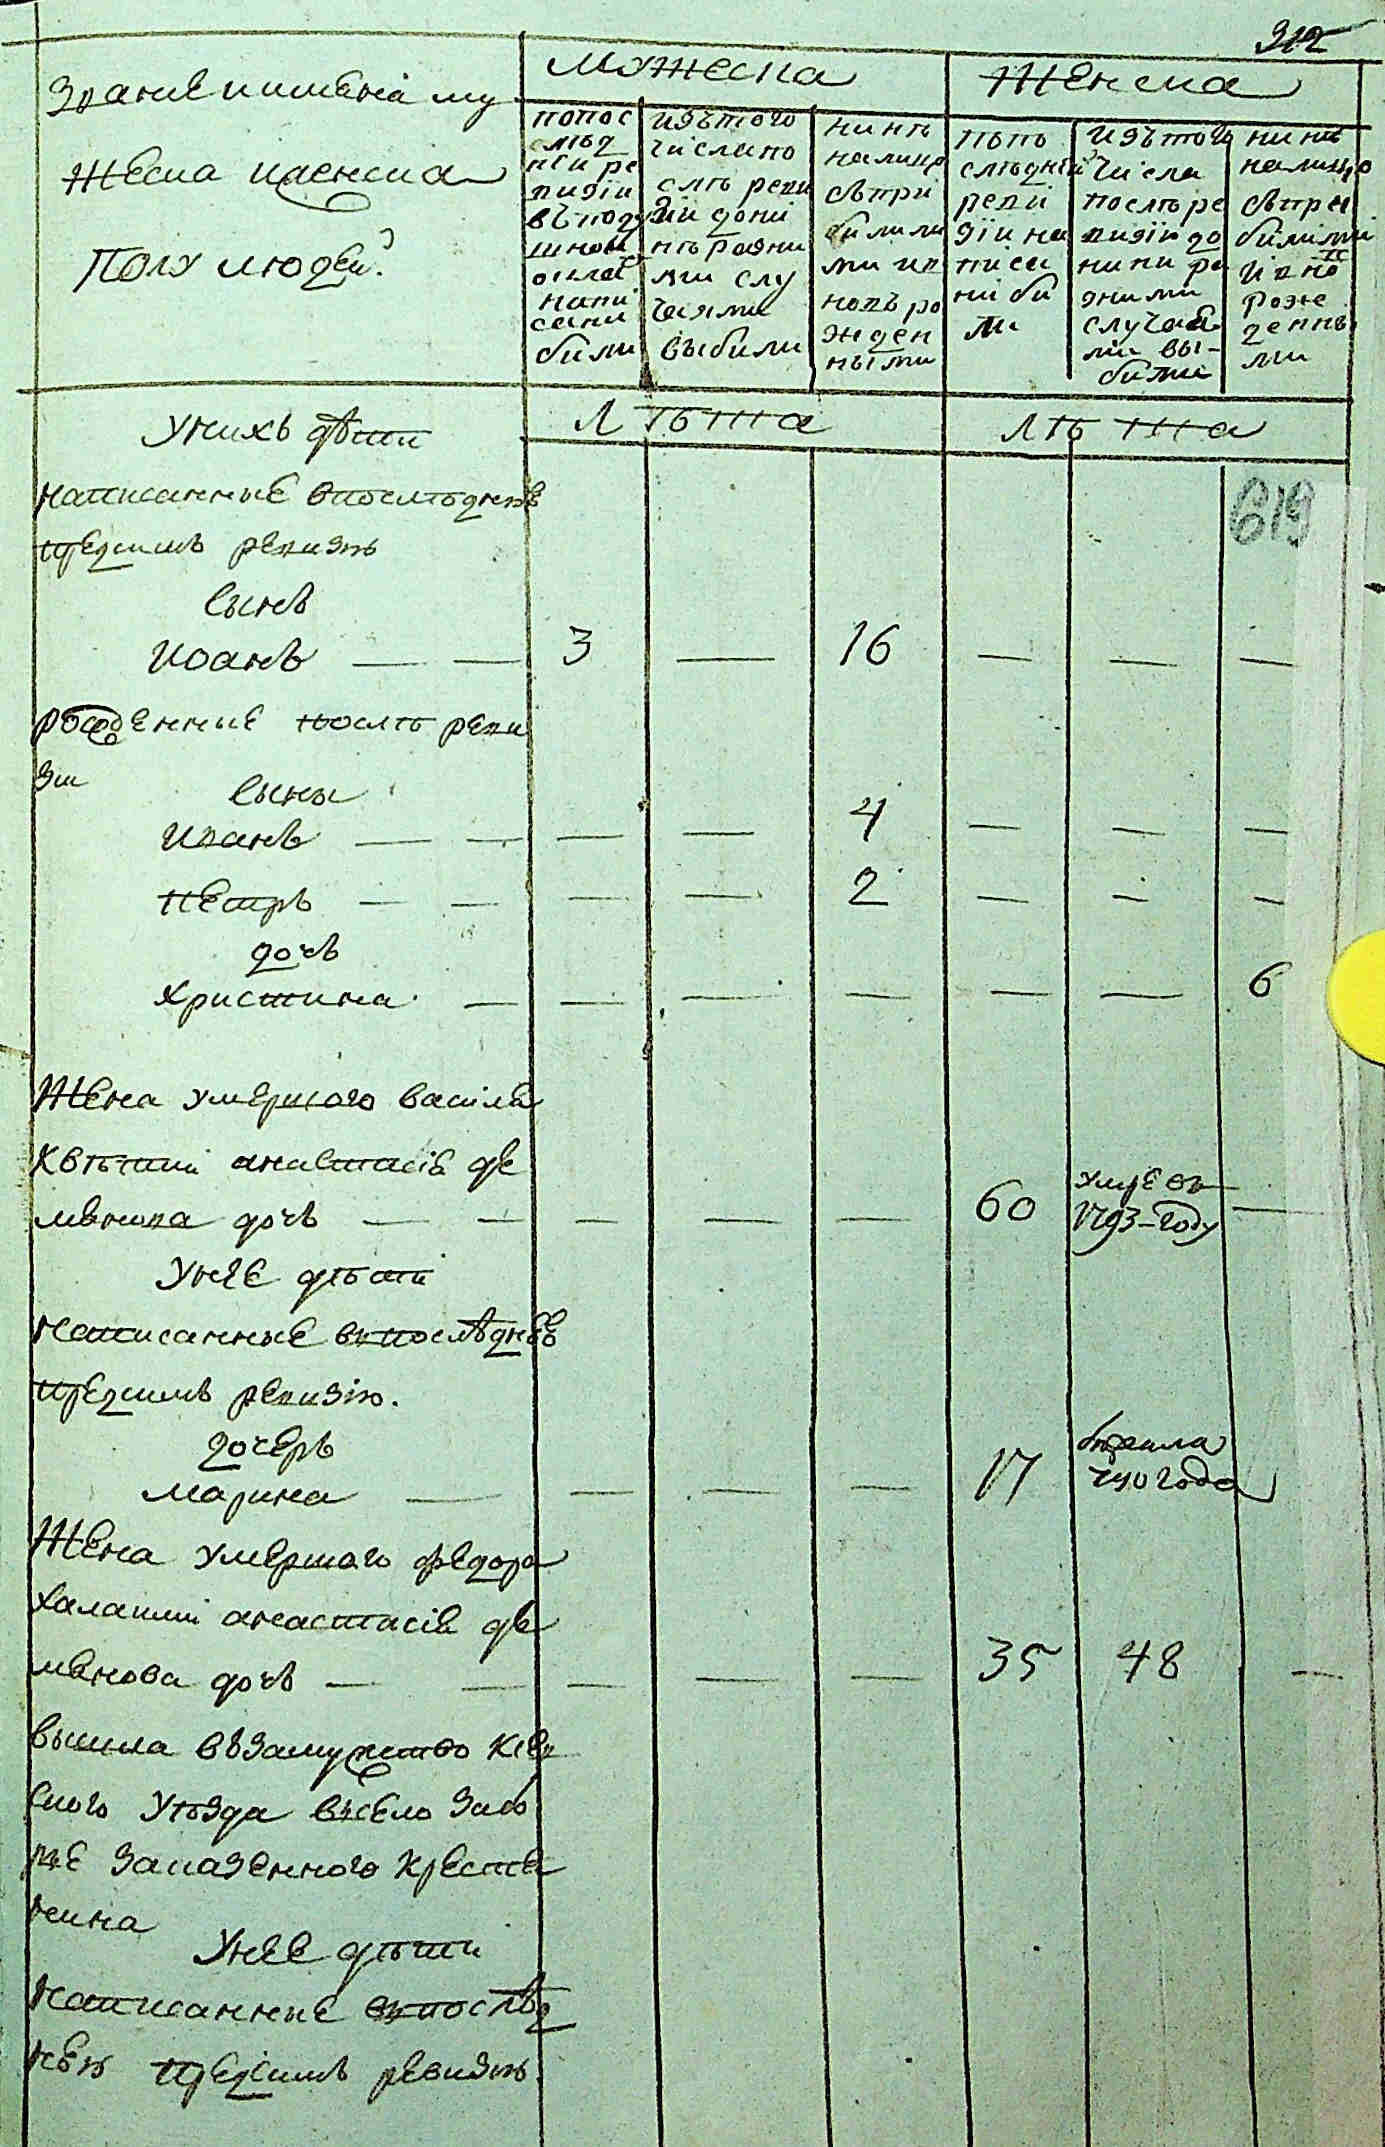 312
Званіе и имена му
жеска и женска
полу людей.
Мужеска
Женска
по пос
лед
ней ре
визіи
въ поду
шной
оклад
напи
саны
были
изъ того
числа по
слѣ реви
зіи до ны
нѣ разны
ми слу
чаями
выбыли
нынѣ
на лицо
съ при
былыми
ми и в
новь ро
жден
ными
по по
слѣдней
реви
зіи на
писа
ны бы
ли
изъ того
числа
послѣ ре
визіи до
ныни ра
зными
случая
ми вы-
были
нынѣ
на лицо
съ при
былыми
и вно
рожде
денны
ми
Лѣта
Лѣта
619
У нихъ дѣти
написанные в последнюю
пред симъ ревизию
сынъ
Иоанъ 3 16
рожденные послѣ реви
зии
сыны
Иванъ 4
Петръ 2
дочь
Христина 6
Жена умершаго Василя
Квѣтки Анастасія де
мянова дочь 60 умре въ
1793-году
У нее дѣти
написанные в послѣднюю
пред симъ ревизію.
дочерь
Марина 17
790 года
Жена умершаго Федора
Анастасія де
мянова дочь 35 48
вышла в замужство Кіев
ского уѣзда в село
казенного крестя
нина
У нее дѣти
написанные в послѣд
нею пред симъ ревизию